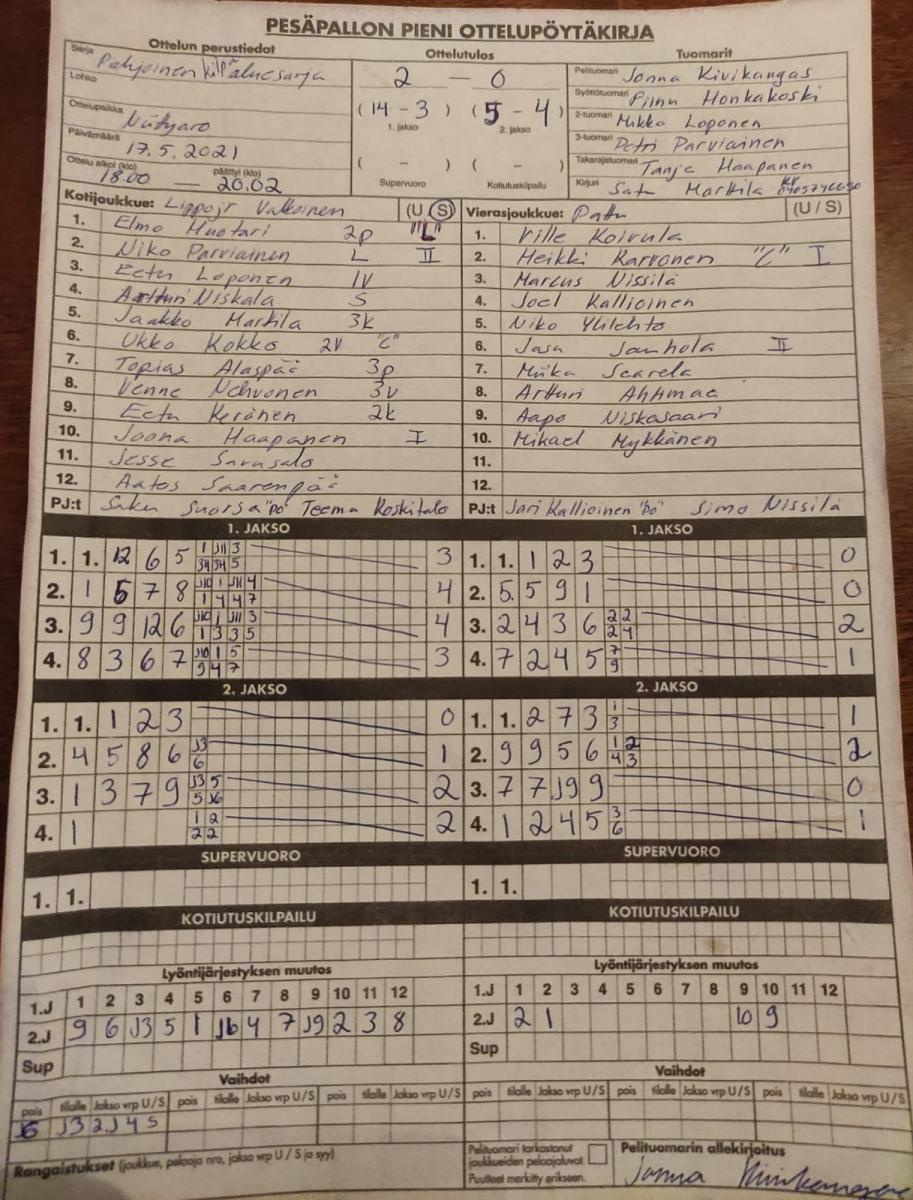 PESÄPALLON PIENI OTTELUPÖYTÄKIRJA
Ottelun perustiedot
Ottelutulos
Tuomarit
Sarja Pohjoinen kilpa aluesarja
2 — 0
Pelituomari Jonna Kivikangas
Lohko
(14 - 3) (5 - 4)
Syöttötuomari Honkakoski
1. jakso 2. jakso
Ottelupaikka
2-tuomari Mikko Loponen
Päivämäärä 17.5.2021
3-tuomari Petri Parviainen
( - ) ( - )
Takarajatuomari Tanja Haapanen
Ottelu alkoi (klo) päättyi (klo)
18.00 — 20.02
Supervuoro Kotiutuskilpailu
Kirjuri Satu Marttila
Kotijoukkue: Lippojr Valkoinen (U/S)
Vierasjoukkue: Pattu (U / S)
1. Elmo Huotari 2p "L"
2. Niko Parviainen L II
3. Eetu Loponen 1V
4. Artturi Niskala S
5. Jaakko Marttila 3k
6. Ukko Kokko 2V "C"
7. Topias Alaspää 3p
8. Venne Nehvonen 3v
9. Eetu Keränen 2k
10. Joona Haapanen I
11. Jesse Sarasalo
12. Aatos Saarenpää
PJ:t Saku Suorsa "PJ" Teema Koskitalo
1. Ville Koivula
2. Heikki Karvonen "C" I
3. Marcus Nissilä
4. Joel Kallioinen
5. Niko Ylilehto
6. Jasa Jonhola II
7. Miika Saarela
8. Artturi Ahtimaa
9. Aapo Niskasaari
10. Mikael Mykkänen
11.
12.
PJ:t Jari Kallioinen "PJ" Simo Nissilä
1. JAKSO
1. 1. 12 6 5 3
2. 1 5 7 8 4
3. 9 9 12 6 4
4. 8 3 6 7 3
1. JAKSO
1. 1. 1 2 3 0
2. 5. 5 9 1 0
3. 2 4 3 6 2 2 2 4 2
4. 7 2 4 5 7 9 1
2. JAKSO
1. 1. 1 2 3 0
2. 4 5 8 6 J3 6 1
3. 1 3 7 9 J3 5 5 J6 2
4. 1 1 2 2 2 2
2. JAKSO
1. 1. 2 7 3 1 3 1
2. 9 9 5 6 1 2 4 3 2
3. 7 7 J9 9 0
4. 1 2 4 5 3 6 1
SUPERVUORO
1. 1.
SUPERVUORO
1. 1.
KOTIUTUSKILPAILU
KOTIUTUSKILPAILU
Lyöntijärjestyksen muutos
1.J 1 2 3 4 5 6 7 8 9 10 11 12
2.J 9 6 J3 5 1 J6 4 7 J9 2 3 8
Sup
Lyöntijärjestyksen muutos
1.J 1 2 3 4 5 6 7 8 9 10 11 12
2.J 2 1 10 9
Sup
Vaihdot
pois tilalle Jakso vrp U/S pois tilalle Jakso vrp U/S pois tilalle Jakso vrp U/S
J3 2J 4 S
Vaihdot
pois tilalle Jakso vrp U/S pois tilalle Jakso vrp U/S pois tilalle Jakso vrp U/S
Rangaistukset (joukkue, pelaaja nro, jakso vrp U / S ja syy)
Pelituomari tarkastanut
joukkueiden pelaajaluvat.
Puutteet merkitty erikseen.
Pelituomarin allekirjoitus
Jonna Kivikangas